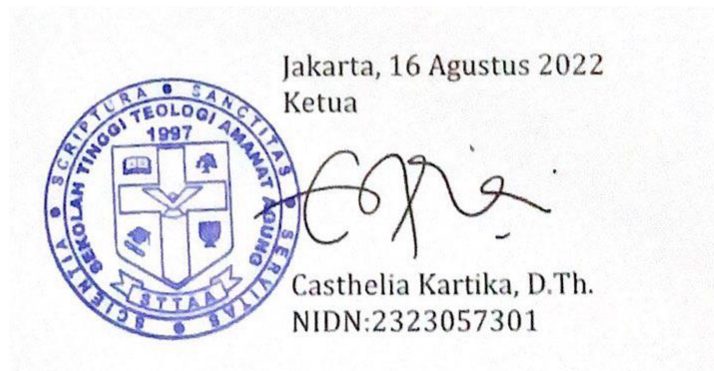 Jakarta, 16 Agustus 2022
Ketua
SCIENTIA • SCRIPTURA • SANCTITAS • SERVITAS
SEKOLAH TINGGI TEOLOGI AMANAT AGUNG
1997
STTAA
Casthelia Kartika, D.Th.
NIDN:2323057301